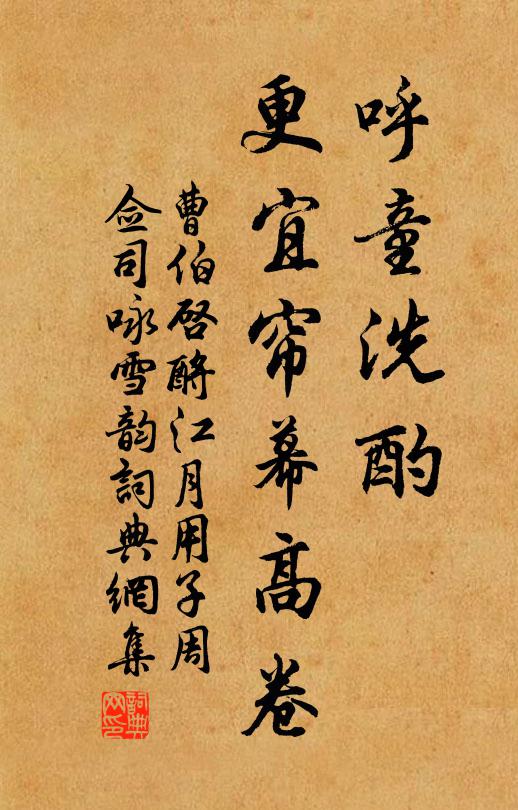 呼童洗酌
更宜帘幕高卷
曹伯啓酹江月用子周
佥司咏雪韵詞典網集
詞典
网印